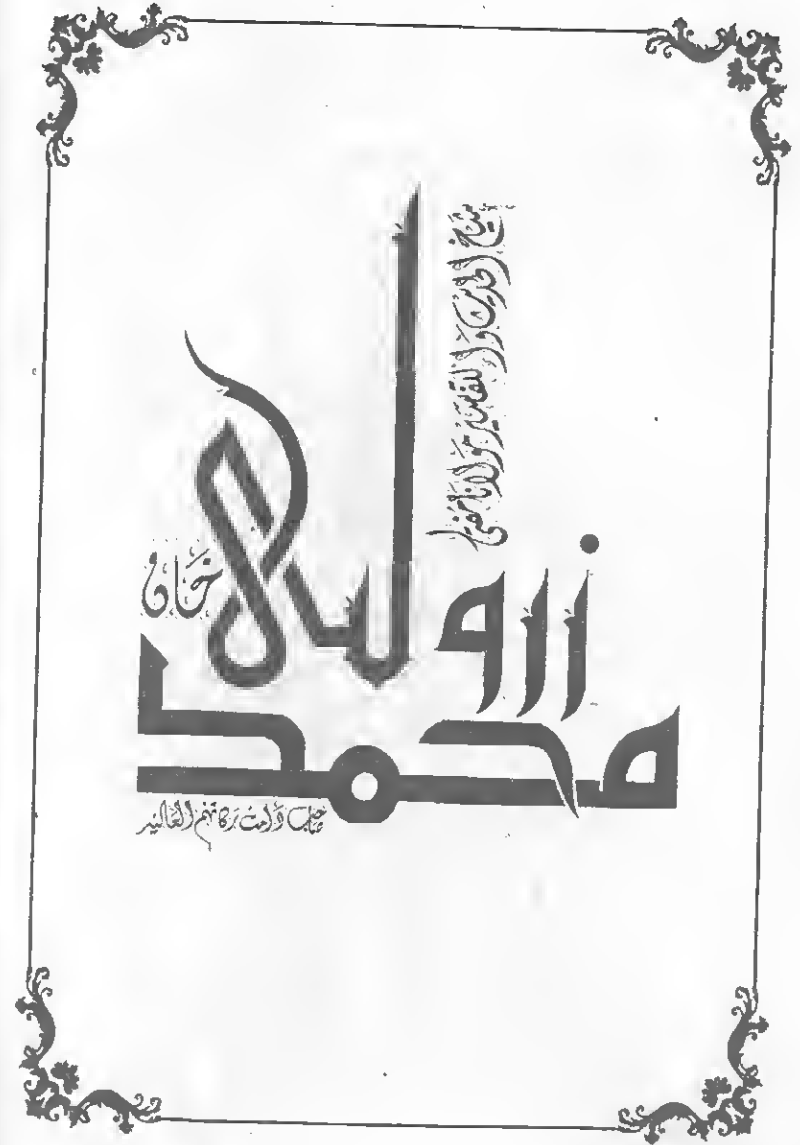 شیخ الحدیث والتفسیر مولانا مفتی
محمد
زرولی
خان
صاحب دامت برکاتہم العالیہ